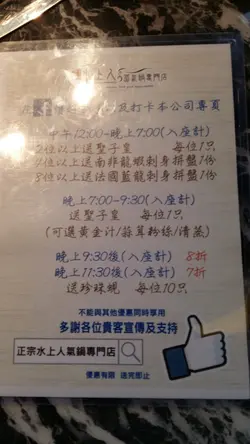 水上人蒸氣鍋專門店
及打卡本公司專頁
中午12:00-晚上7:00(入座計)
位以上送聖子皇 每位1只
位以上送南非龍蝦刺身拼盤1份
位以上送法國藍龍蝦刺身拼盤1份
晚上7:00-9:30(入座計)
送聖子皇 每位1只
(可選黃金汁/蒜茸粉絲/清蒸)
晚上9:30後(入座計) 8折
晚上11:30後(入座計) 7折
送珍珠蜆 每位10只
不能與其他優惠同時享用
多謝各位貴客宣傳及支持
正宗水上人氣鍋專門店
優惠有限 送完即止